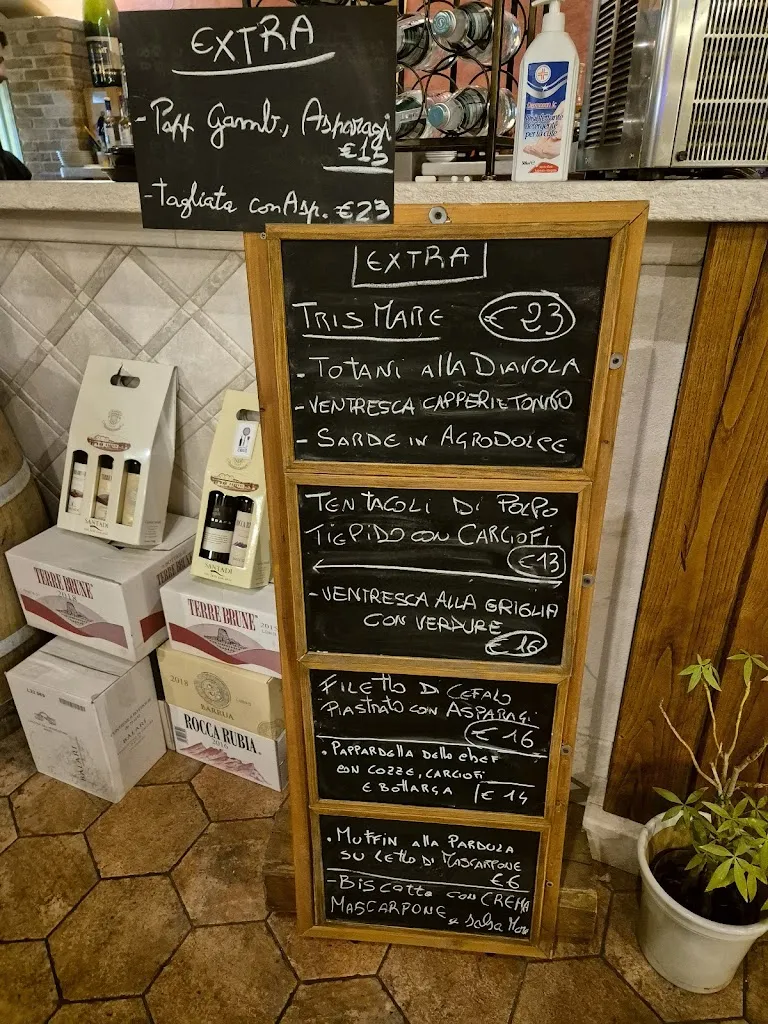 EXTRA
- Papp Gamb., Asparagi
€15
- Tagliata con Asp. €23
EXTRA
TRIS MARE €23
- TOTANI allA DIAVOLA
- VENTRESCA CAPPERI E TONNO
- SARDE IN AGRODOLCE
TENTACOLI DI POLPO
TIEPIDO CON CARCIOFI
€13
- VENTRESCA ALLA GRIGLIA
CON VERDURE
€16
FILETTO DI CEFALO
PIASTRATO CON ASPARAGI
€16
• PAPPARDELLA dello chef
CON COZZE, CARCIOFI
E BOTTARGA €14
• MUFFIN allA PARDULA
SU LETTO DI MASCARPONE
€6
- BISCOTTO CON CREMA
MASCARPONE e salsa
SANTADI
SANTADI
TERRE BRUNE
2018
TERRE BRUNE
BARRUA
2018
ROCCA RUBIA
2016